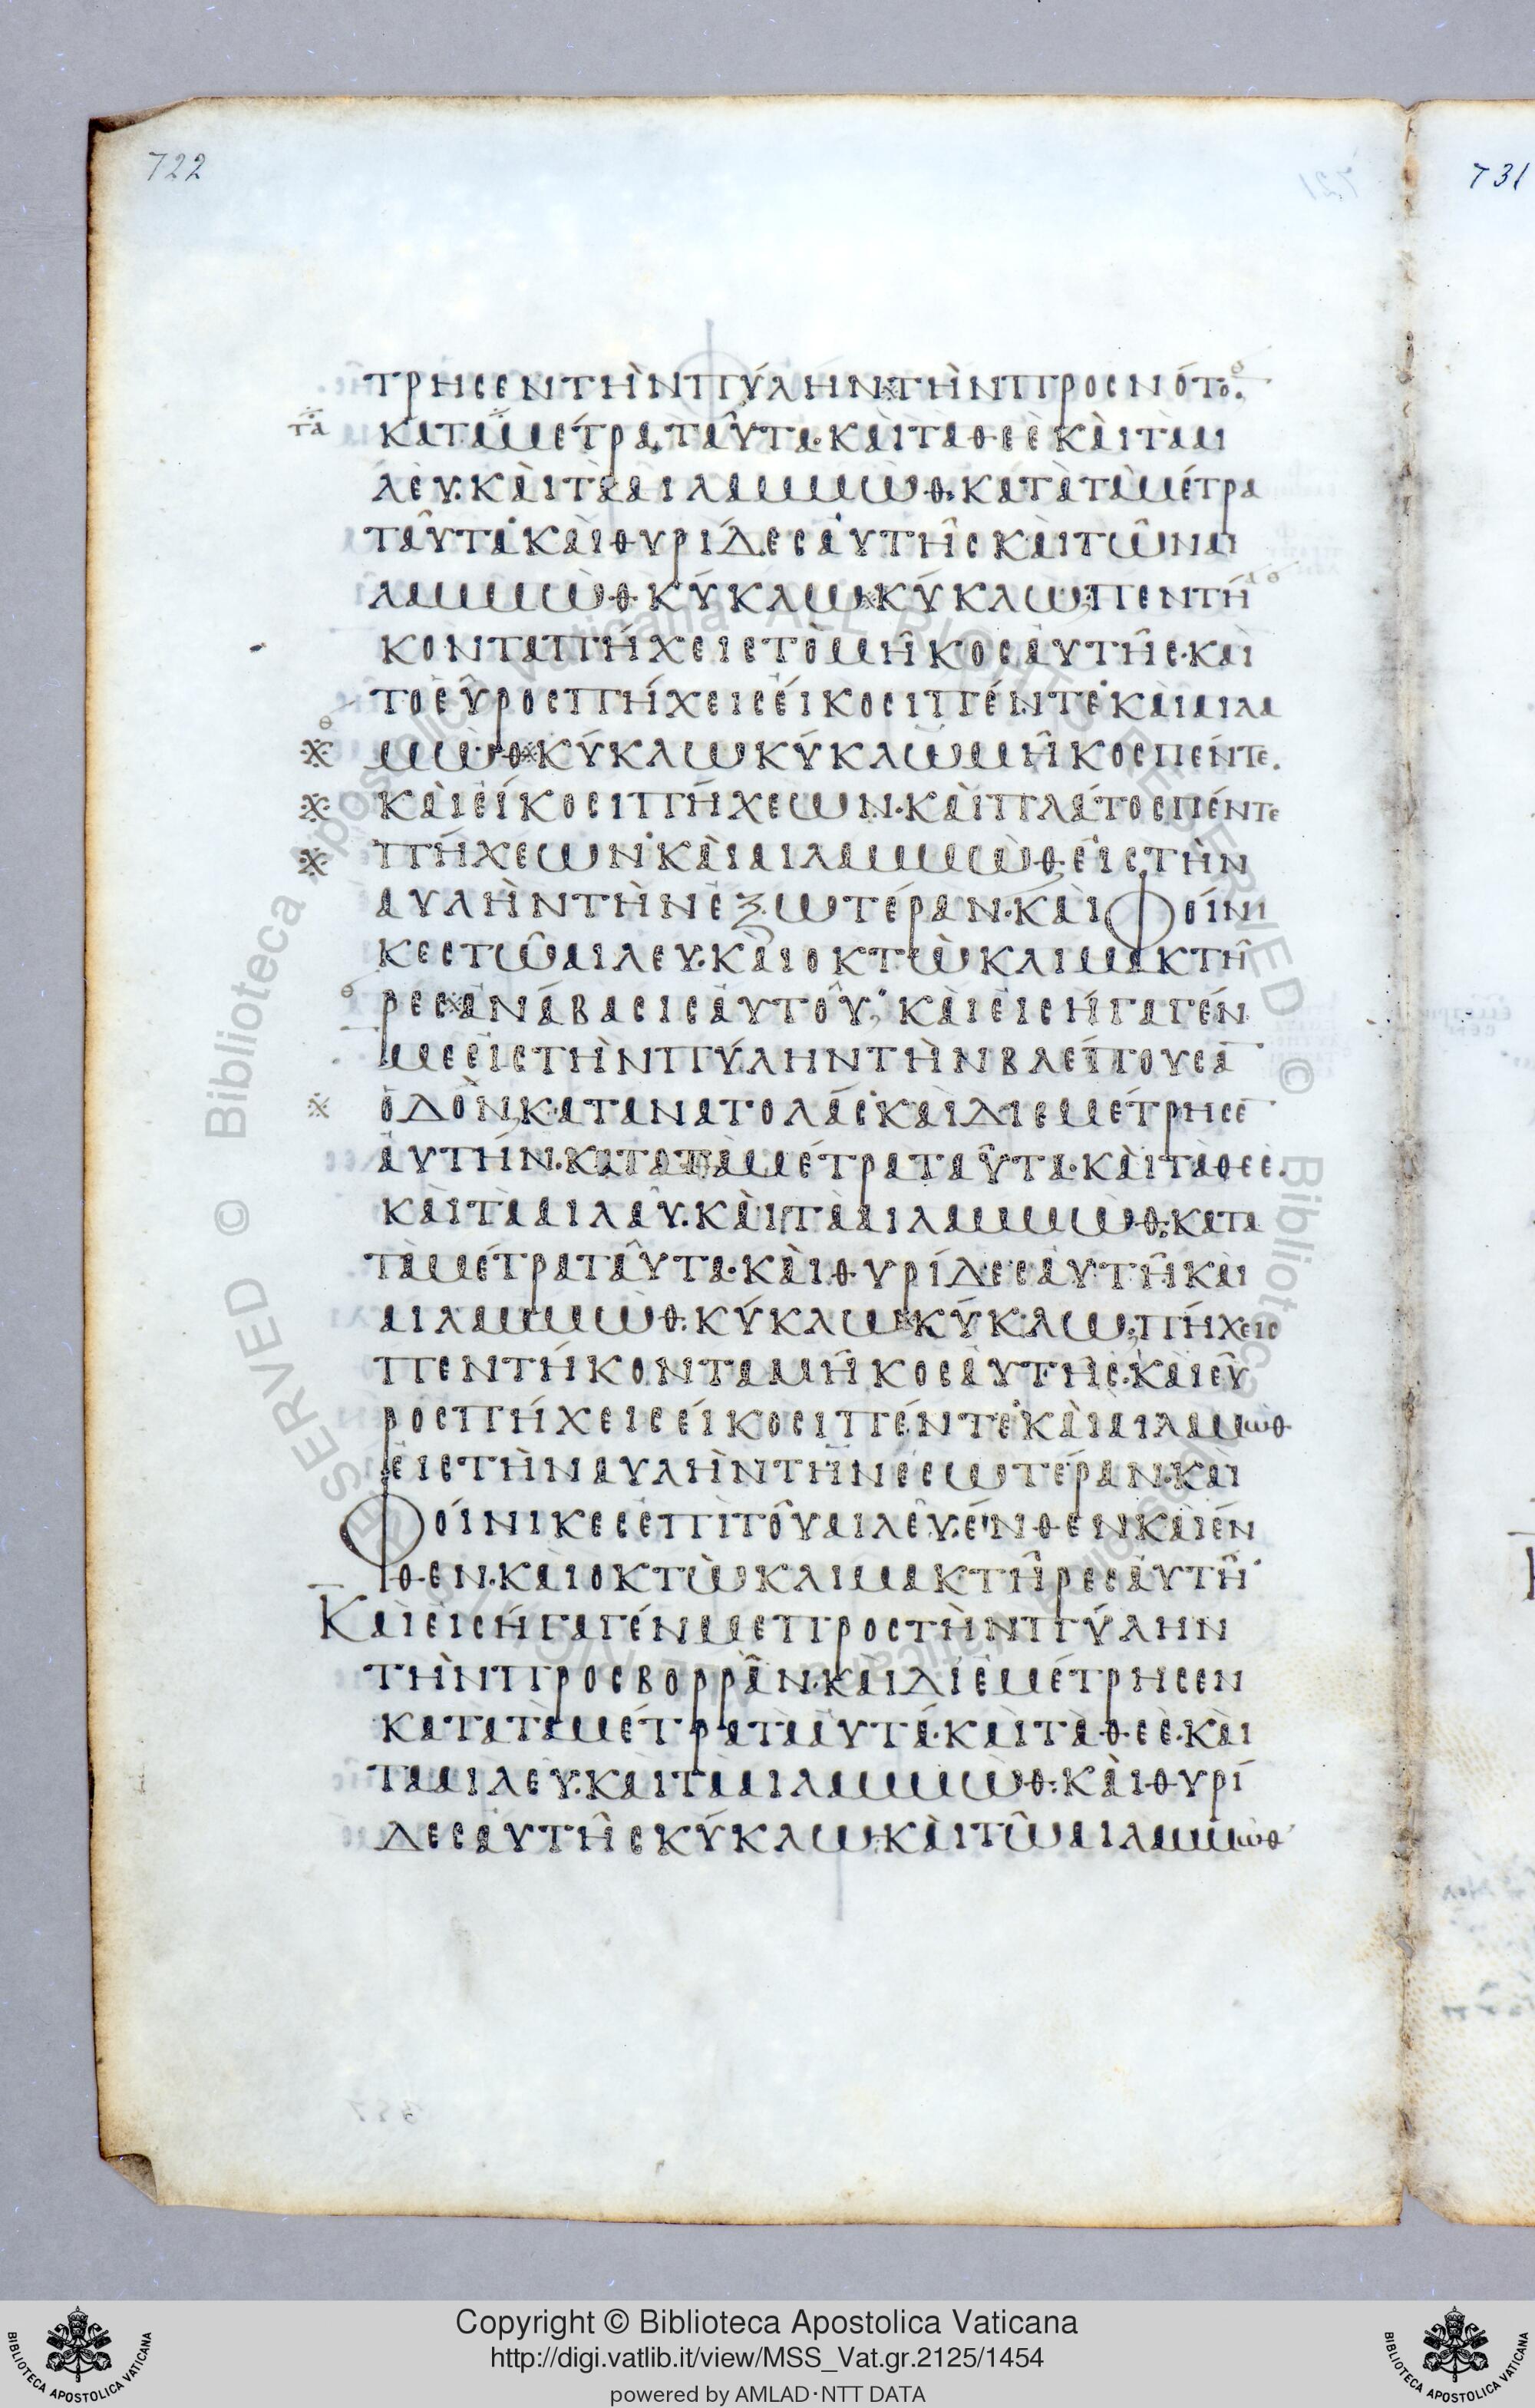 722
731
ΤΡΗϹΕΝΤῊΝΠΎΛΗΝ※ΤῊΝΠΡΟϹΝΌΤΟ̅.
τὰ ΚΑΤΑΜΈΤΡΑ,ΤΑΥ͂ΤΑ·ΚΑῚΤΑΘΕῈΚΑῚΤΑΑΙ
ΛΕΥ·ΚΑῚΤᾺΑΙΛΑΜΜῺΘ·ΚΑΤᾺΤᾺΜΈΤΡΑ
ΤΑΥ͂ΤΑ·ΚΑῚΘΥΡΊΔΕϹΑΥΤΗ͂ϹΚΑῚΤΩ͂ΝΑΙ
ΛΑΜΜῺΘΚΎΚΛΩ※ΚΎΚΛΩ,ΠΕΝΤΉ
ΚΟΝΤΑΠΉΧΕΙϹΤῸΜΗ͂ΚΟϹΑΥΤΗ͂Ϲ·ΚΑῚ
ΤΟΕΥ͂ΡΟϹΠΉΧΕΙϹΕΊΚΟϹΙΠΈΝΤΕ·ΚΑῚΑΙΛΑ
※ ΜΜῺΘ※ΚΎΚΛΩΚΎΚΛΩΜΗ͂ΚΟϹΠΈΝΤΕ.
※ ΚΑῚΕΊΚΟϹΙΠΉΧΕΩΝ·ΚΑῚΠΛΆΤΟϹΠΈΝΤΕ
※ ΠΉΧΕΩΝ·ΚΑῚΑΙΛΑΜΜῺΘ,ΕΙϹΤῊΝ
ΑΥΛῊΝΤῊΝΕΞΩΤΈΡΑΝ·ΚΑῚΦΟΊΝΙ
ΚΕϹΤΩ͂ΑΙΛΕΥ·ΚΑῚΟΚΤῺΚΛΙΜΑΚΤΗ͂
ΡΕϹ※ΑΝΆΒΑϹΙϹΑΥΤΟΥ͂,·ΚΑῚΕΙϹΉΓΑΓΈΝ
ΜΕΕΙϹΤῊΝΠΎΛΗΝΤῊΝΒΛΈΠΟΥϹΑ̅
※ ὉΔῸΝ,ΚΑΤΑΝΑΤΟΛΆϹ·ΚΑῚΔΙΕΜΈΤΡΗϹΕ̅
ΑΥΤΉΝ·ΚΑΤΑΤΑΜΈΤΡΑΤΑΥ͂ΤΑ·ΚΑῚΤᾺΘΕῈ.
ΚΑῚΤᾺΑΙΛΑΥ·ΚΑῚΤᾺΑΙΛΑΜΜῺΘ·ΚΑΤΑ
ΤᾺΜΈΤΡΑΤΑΥ͂ΤΑ·ΚΑῚΘΥΡΊΔΕϹΑΥΤΗ͂ΚΑῚ
ΑΙΛΑΜΜῺΘ·ΚΎΚΛΩ※ΚΎΚΛΩ,ΠΉΧΕΙϹ
ΠΕΝΤΉΚΟΝΤΑΜΗ͂ΚΟϹΑΥΤΗϹ·ΚΑῚΕΥ͂
ΡΟϹΠΉΧΕΙϹΕΊΚΟϹΙΠΈΝΤΕ·ΚΑῚΑΙΛΑΜῺΘ
ΕΙϹΤῊΝΑΥΛῊΝΤῊΝΕϹΩΤΈΡΑΝ·ΚΑΙ
ΦΟΊΝΙΚΕϹΕΠῚΤΟΥ͂ΑΙΛΕΥ·ΈΝΘΕΝΚΑῚΈΝ
ΘΕΝ·ΚΑῚΟΚΤῺΚΛΙΜΑΚΤΗ͂ΡΕϹΑΥΤΗ͂·
ΚΑῚΕΙϹΉΓΑΓΈΝΜΕΠΡΟϹΤῊΝΠΎΛΗΝ
ΤῊΝΠΡΟϹΒΟΡΡΑ͂Ν·ΚΑῚΔΙΕΜΈΤΡΗϹΕΝ
ΚΑΤΑΤᾺΜΈΤΡΑΤΑΑΥΤΆ·ΚΑῚΤᾺΘΕῈ·ΚΑῚ
ΤΑΑΙΛΕΥ·ΚΑῚΤᾺΑΙΛΑΜΜῺΘ·ΚΑῚΘΥΡΊ
ΔΕϹΑΥΤΗ͂ϹΚΎΚΛΩ·ΚΑῚΤΩ͂ΑΙΛΑΜΜῺΘ
Copyright © Biblioteca Apostolica Vaticana
http://digi.vatlib.it/view/MSS_Vat.gr.2125/1454
powered by AMLAD·NTT DATA